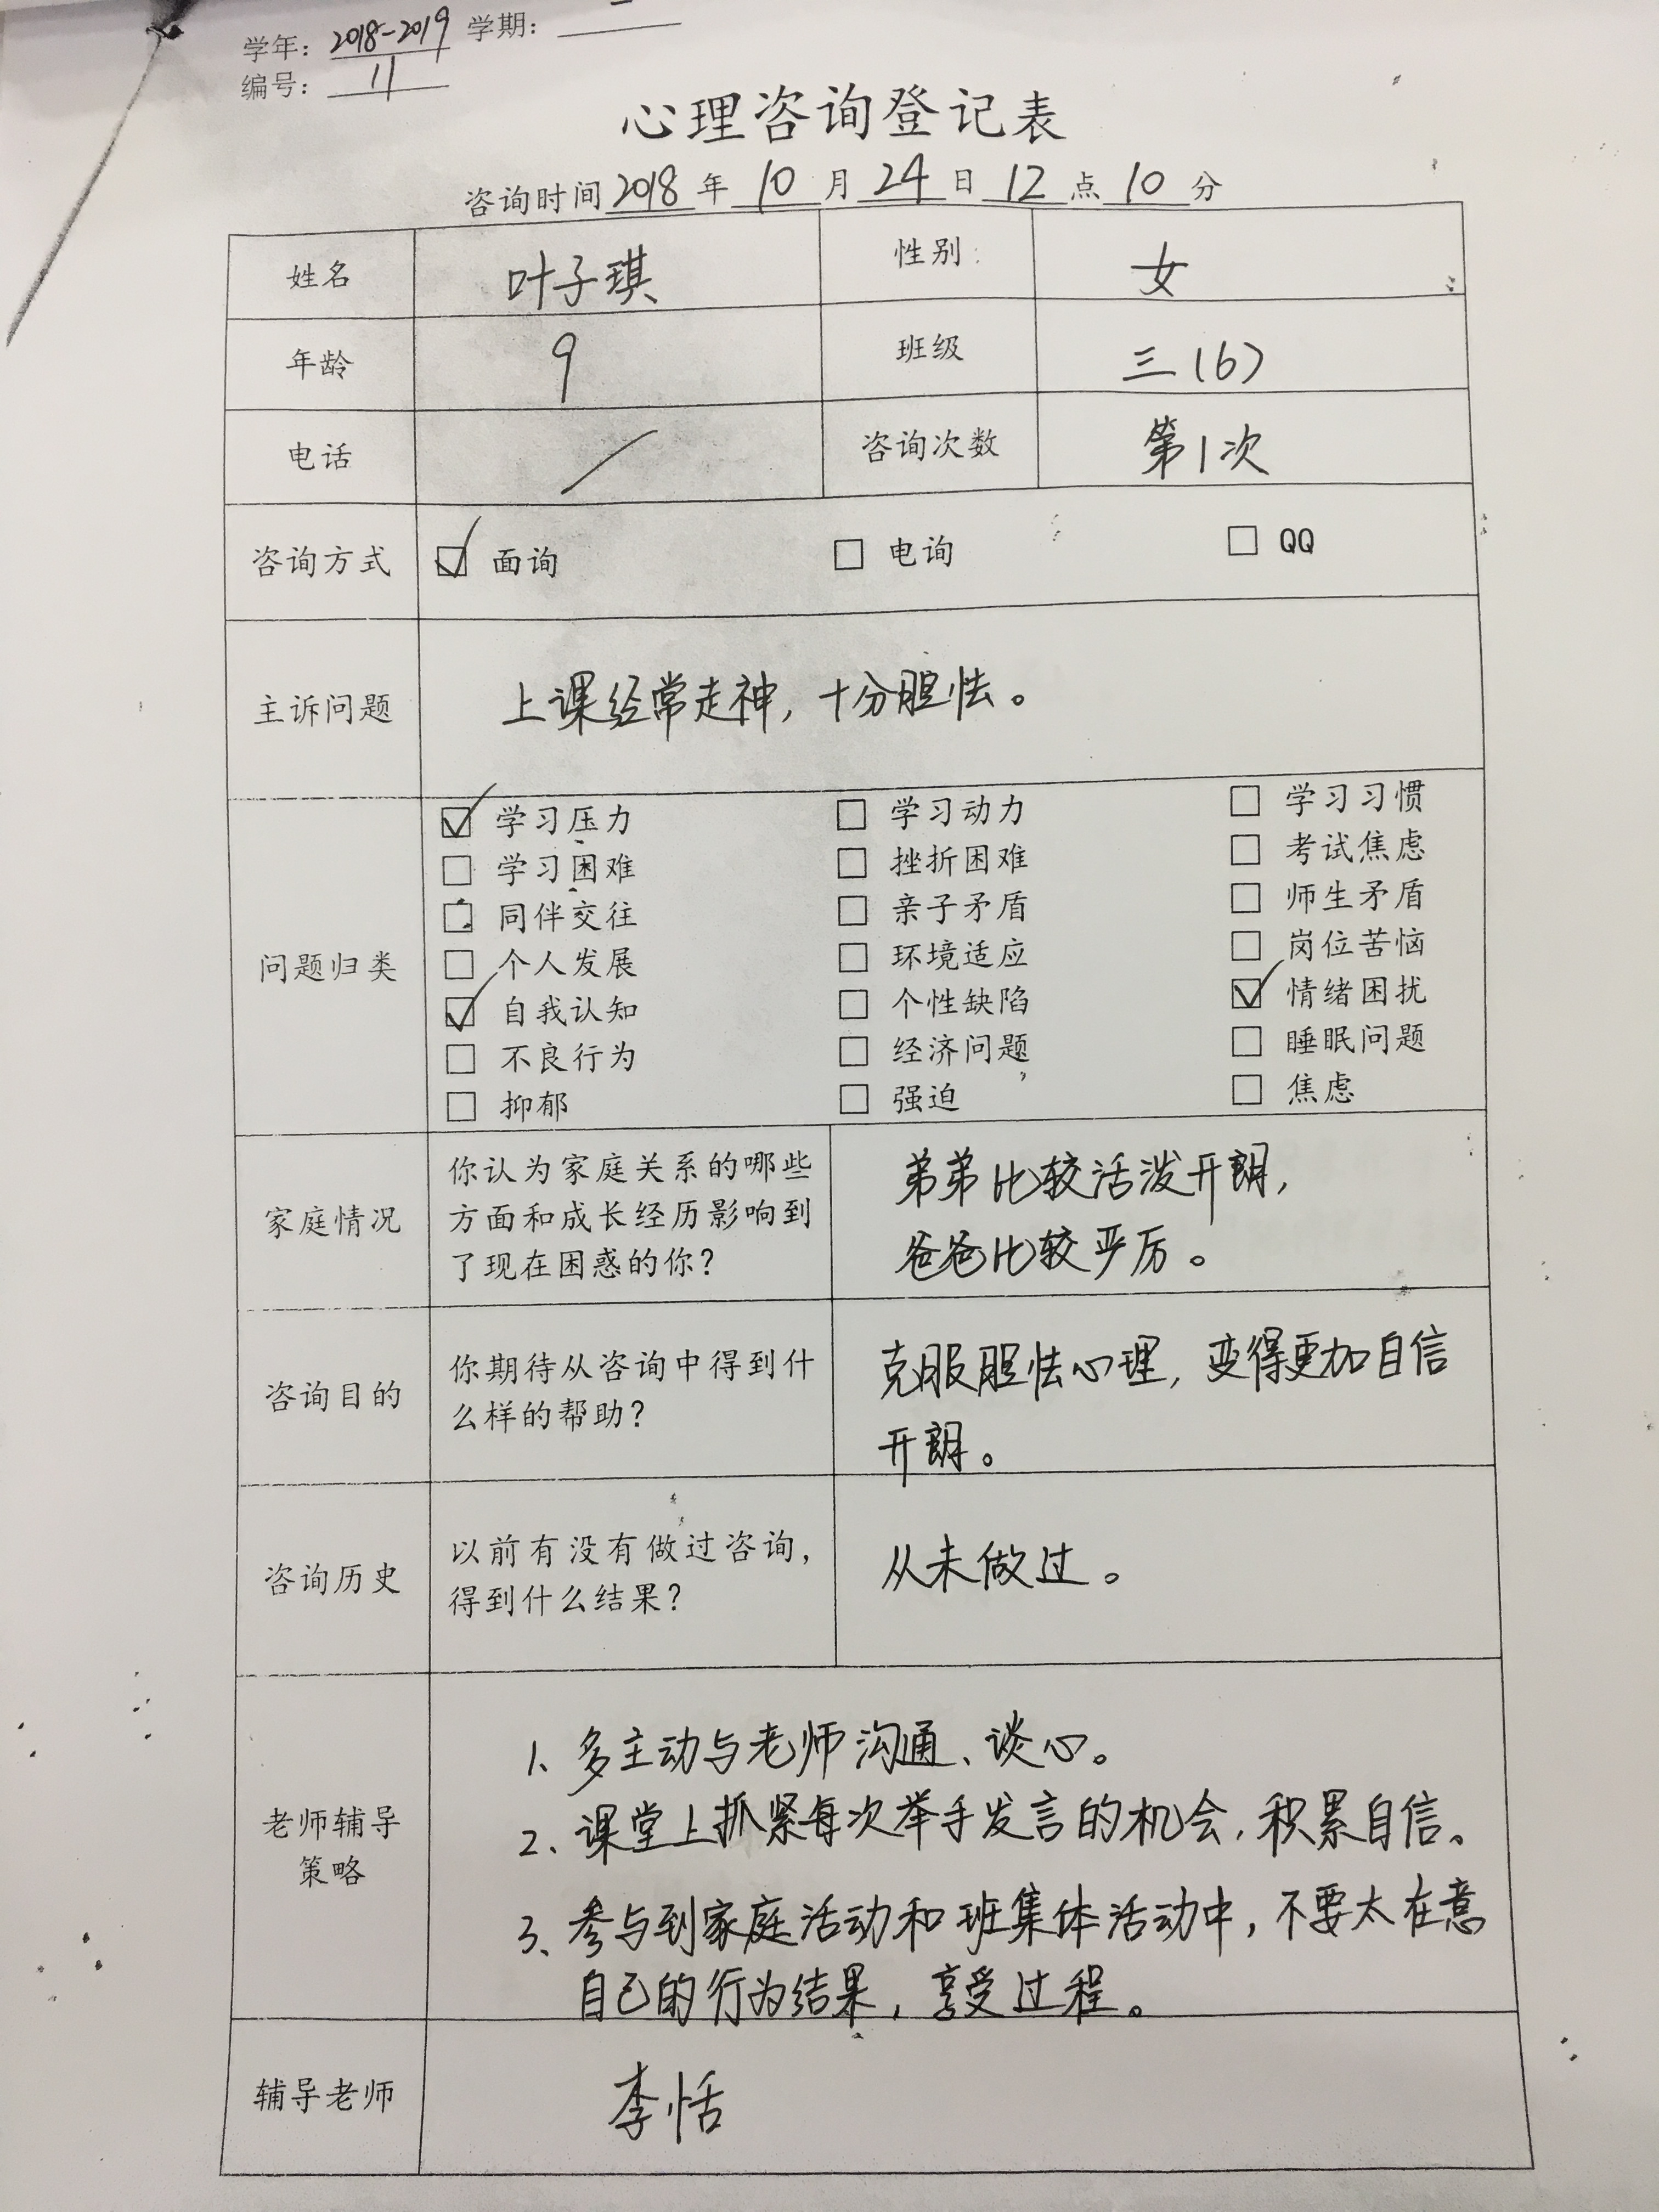 学年：2018-2019 学期：
编号：11
心理咨询登记表
咨询时间2018年10月24日12点10分
姓名 叶子琪 性别 女
年龄 9 班级 三(6)
电话 / 咨询次数 第1次
咨询方式 ☑ 面询 □ 电询 □ QQ
主诉问题 上课经常走神，十分胆怯。
☑ 学习压力 □ 学习动力 □ 学习习惯
□ 学习困难 □ 挫折困难 □ 考试焦虑
□ 同伴交往 □ 亲子矛盾 □ 师生矛盾
问题归类 □ 个人发展 □ 环境适应 □ 岗位苦恼
☑ 自我认知 □ 个性缺陷 ☑ 情绪困扰
□ 不良行为 □ 经济问题 □ 睡眠问题
□ 抑郁 □ 强迫 □ 焦虑
家庭情况
你认为家庭关系的哪些
方面和成长经历影响到
了现在困惑的你？
弟弟比较活泼开朗，
爸爸比较严厉。
咨询目的
你期待从咨询中得到什
么样的帮助？
克服胆怯心理，变得更加自信
开朗。
咨询历史
以前有没有做过咨询，
得到什么结果？
从未做过。
老师辅导
策略
1、多主动与老师沟通、谈心。
2、课堂上抓紧每次举手发言的机会，积累自信。
3、参与到家庭活动和班集体活动中，不要太在意
自己的行为结果，享受过程。
辅导老师 李恬